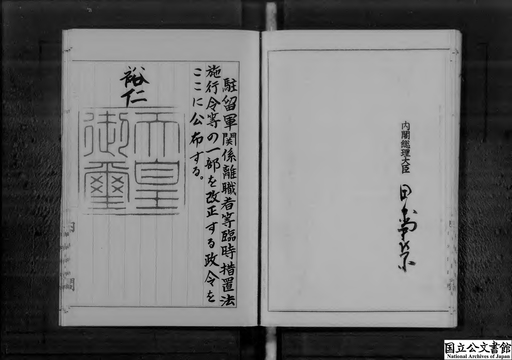 内閣総理大臣
駐留軍関係離職者等臨時措置法
施行令等の一部を改正する政令を
ここに公布する。
裕仁
天皇
御璽
国立公文書館
National Archives of Japan